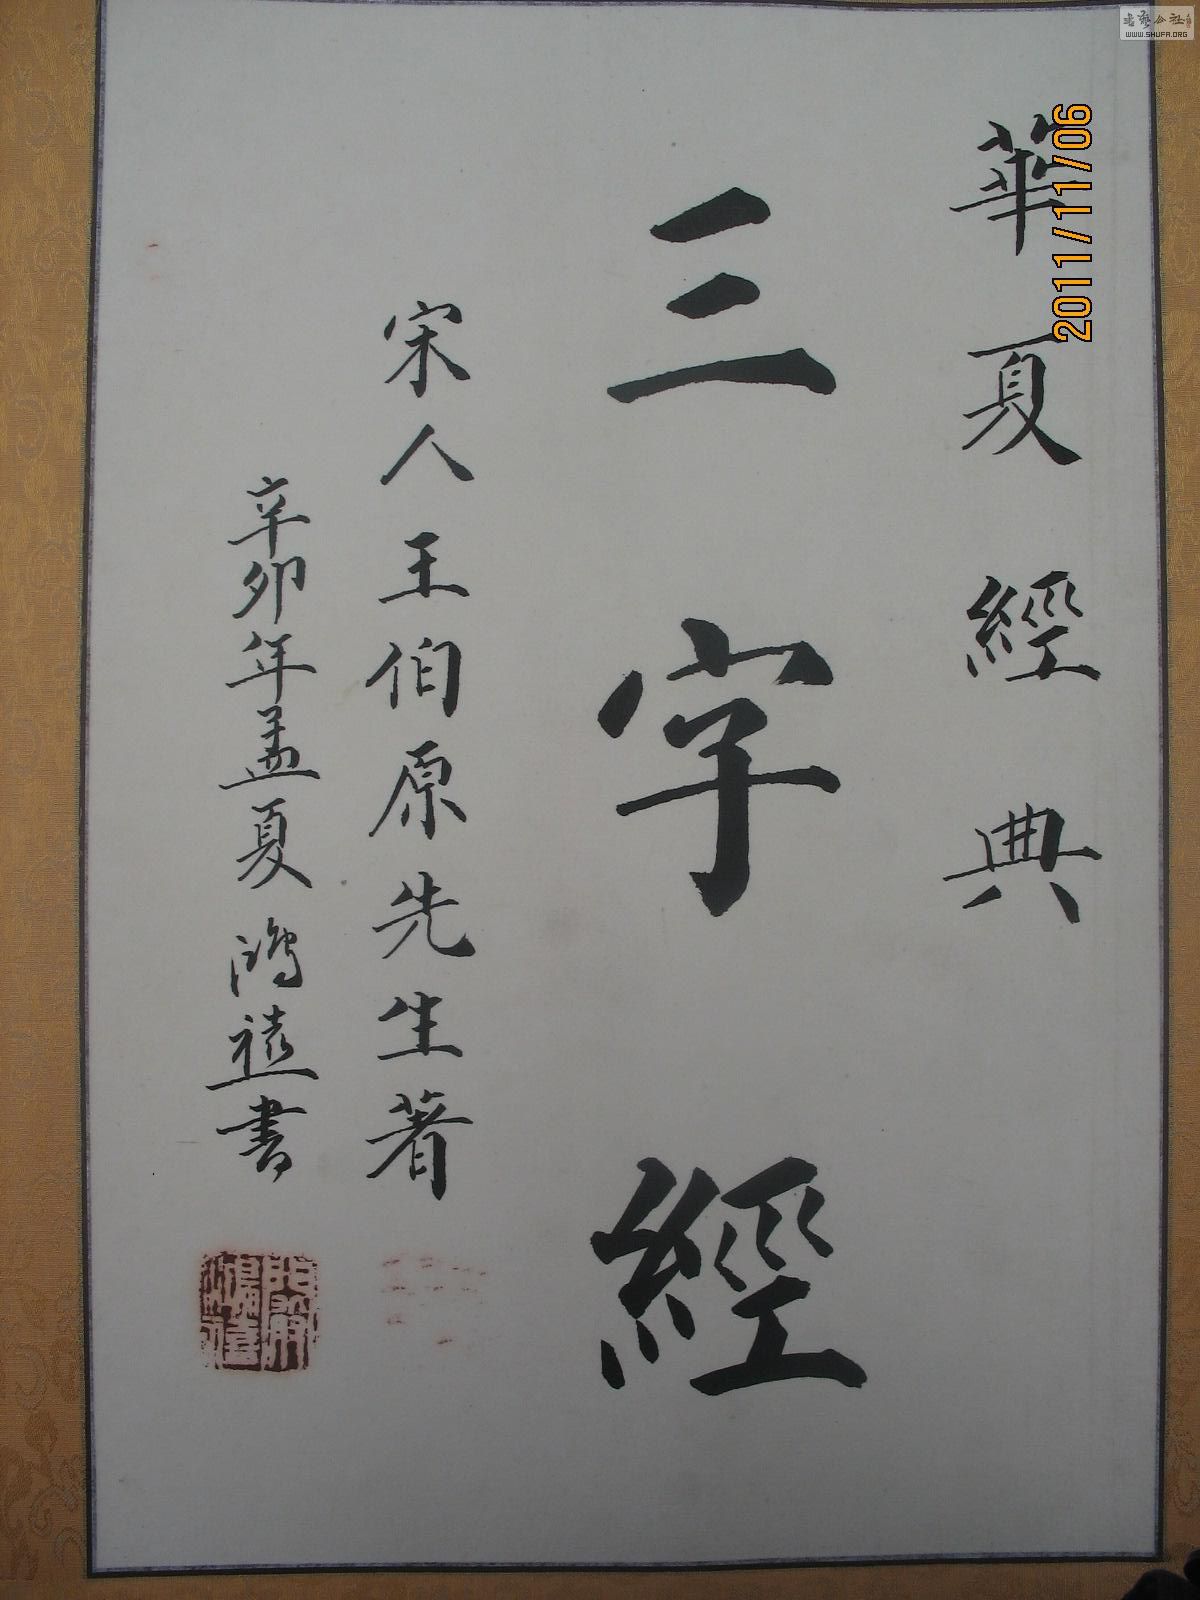 華夏經典
三字經
宋人王伯原先生著
辛卯年孟夏 鴻禧書
2011/11/06
书艺公社
WWW.SHUFA.ORG